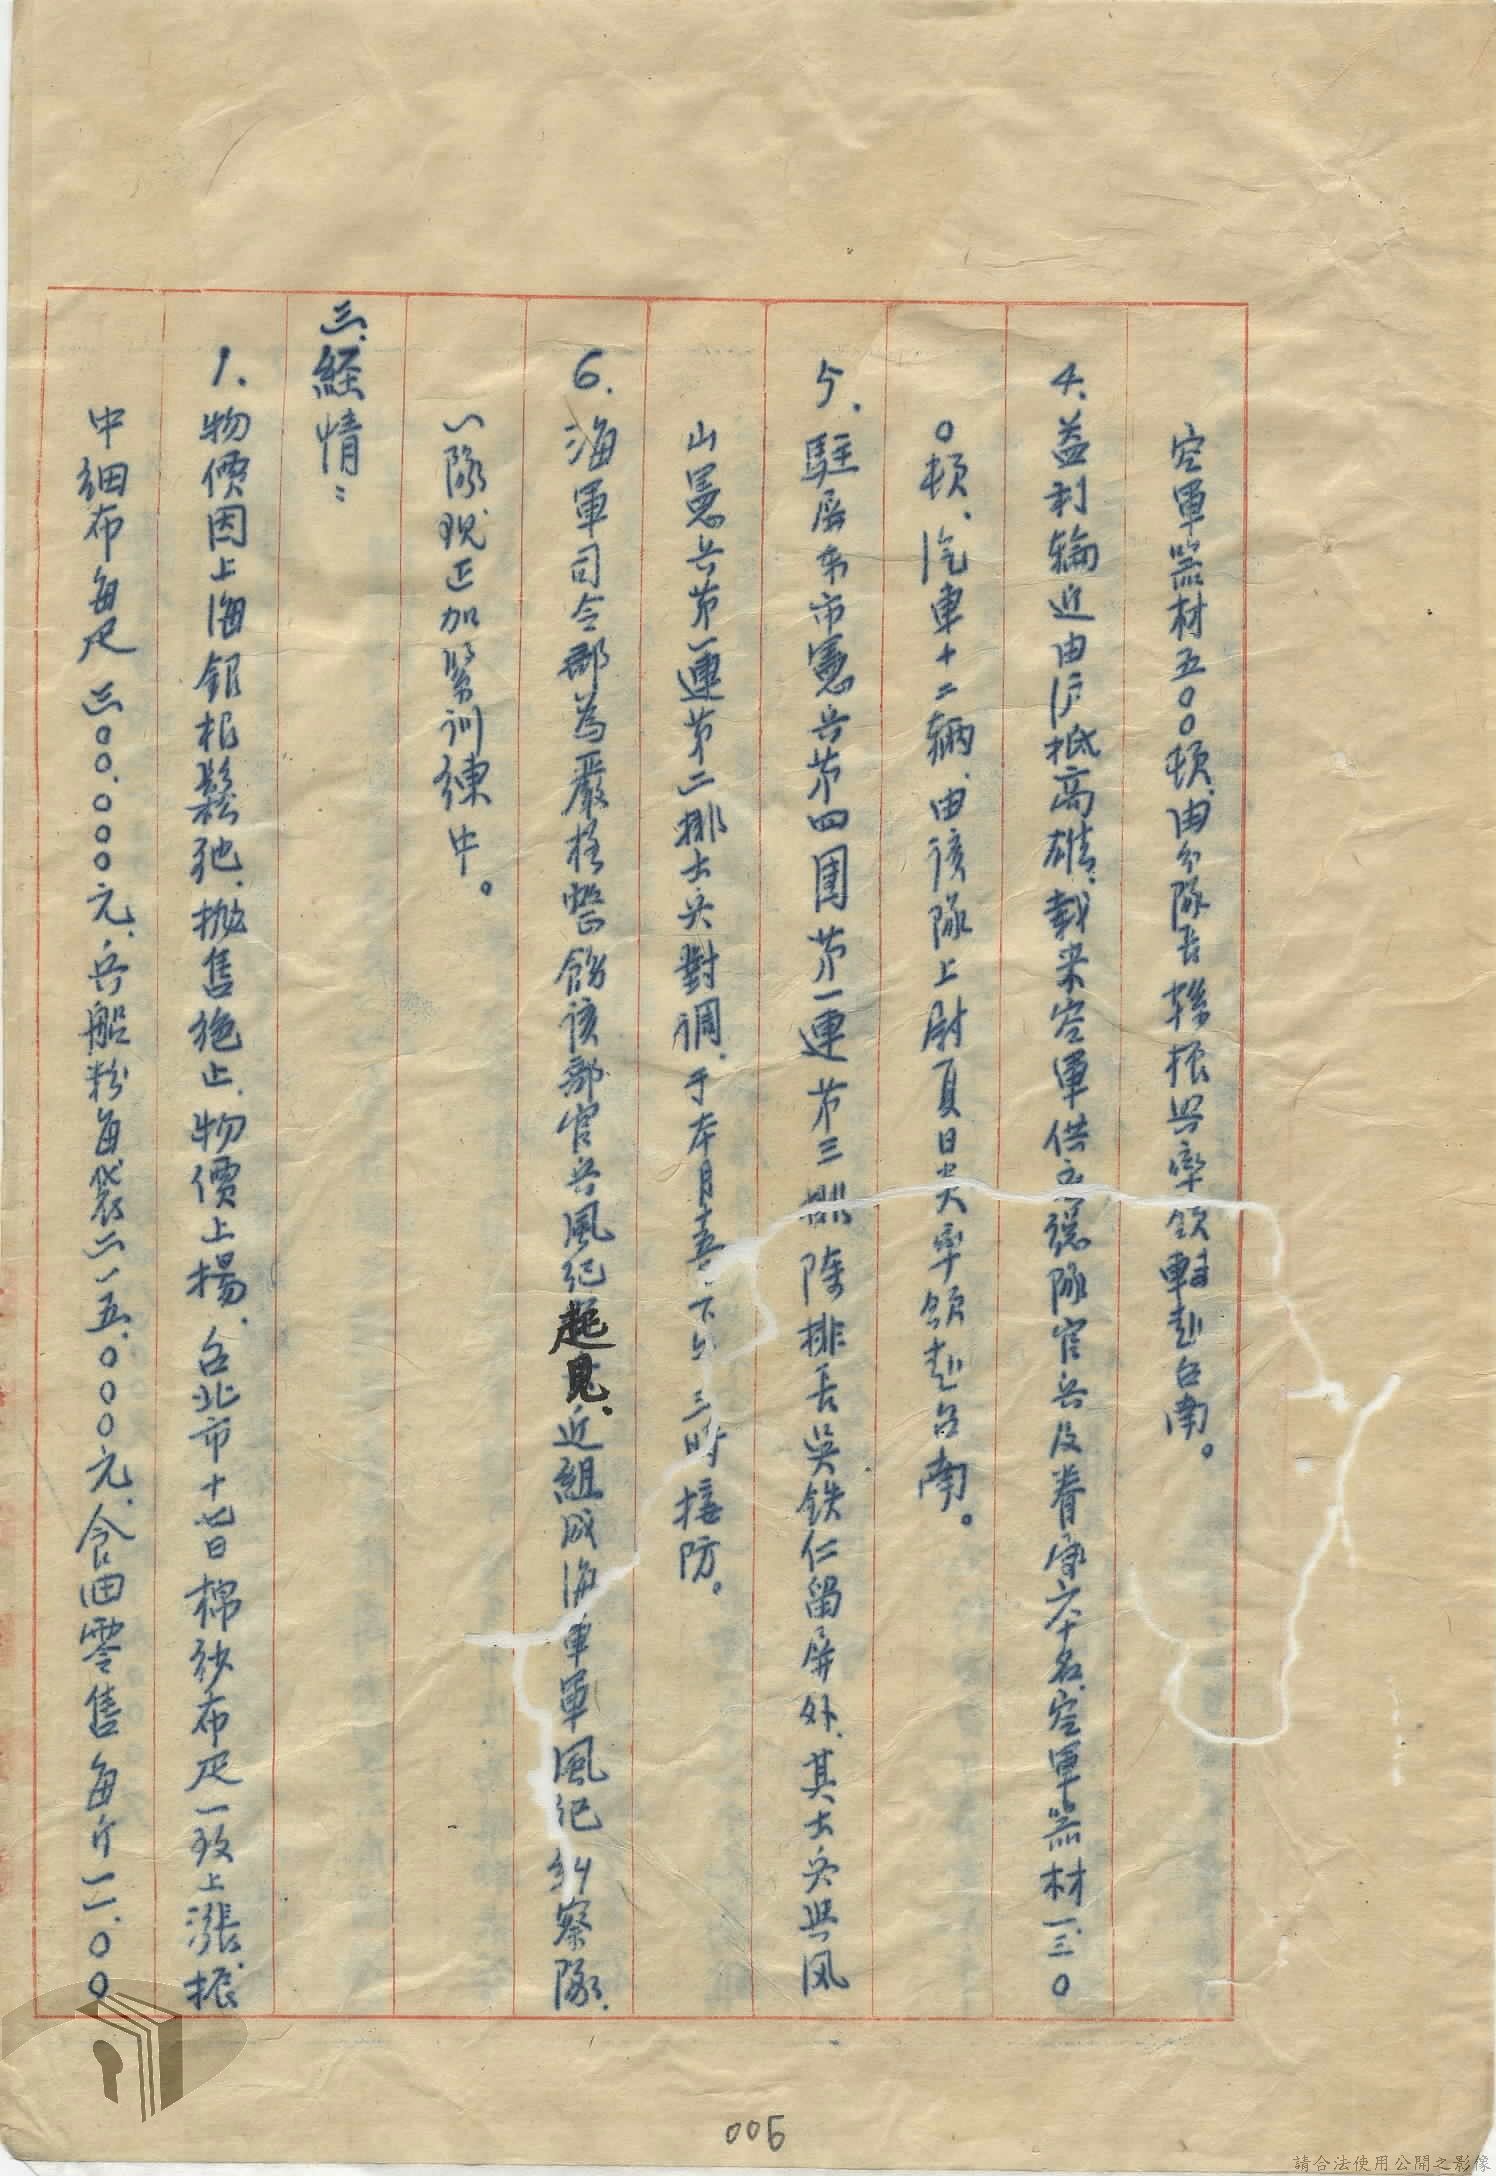 空軍器材五〇〇頓、由分隊長韓振興率領轉赴台南。
4、益利輪近由滬抵高雄、載來空軍供應總隊官兵及眷屬六十名、空軍器材一、三〇
〇頓、汽車十二輛、由該隊上尉夏日炎率領赴台南。
5、駐屏東市憲兵第四團第一連第三排除排長吳鉄仁留屏外、其士兵與风
山憲兵第一連第二排士兵對调、于本月 下午三時接防。
6、海軍司令部為嚴格整飭該部官兵風紀起見、近組成海軍軍風紀糾察隊、
一隊現正加緊训練中。
三、經情：
1、物價因上海銀根鬆弛、拋售絶止、物價上揚、台北市十七日棉紗布疋一致上漲、振
中細布每疋三〇〇、〇〇〇元、兵船粉每袋二一五、〇〇〇元、食油零售每斤一一、〇〇
005
請合法使用公開之影像